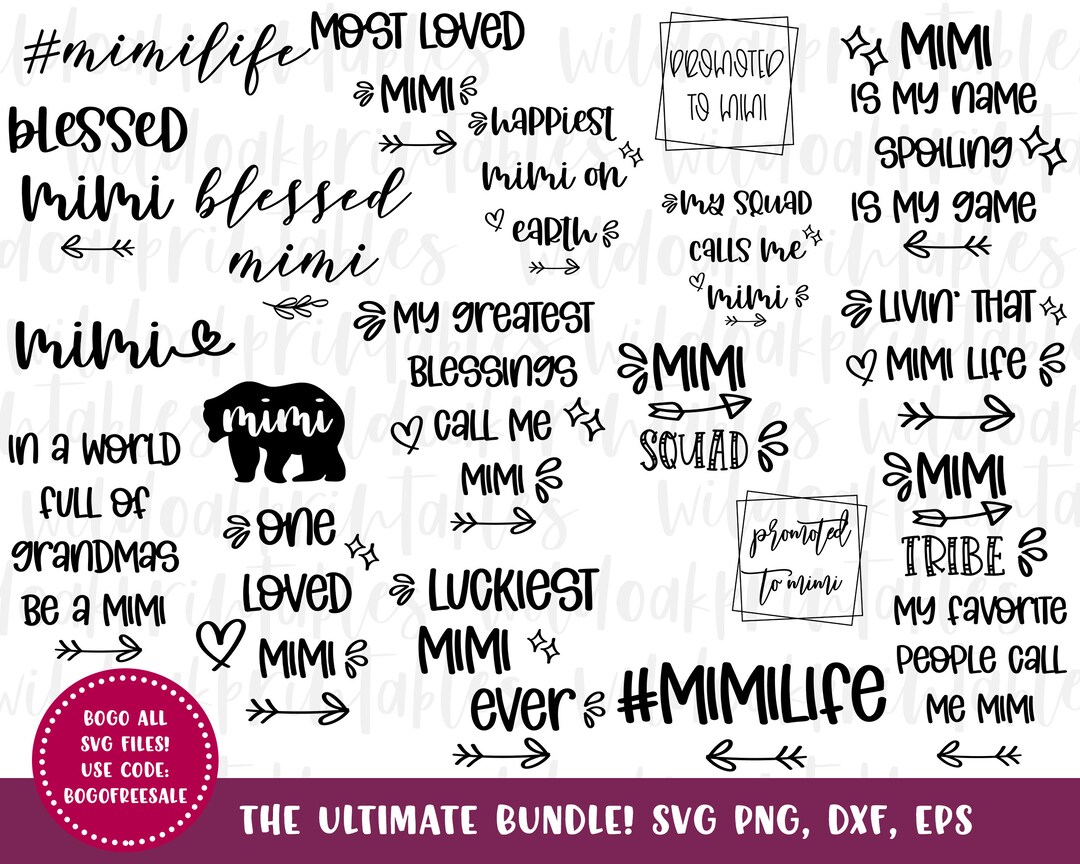 #mimilife
MOST LOVED
MIMI
blessed
mimi
blessed
mimi
happiest
mimi on
earth
PROMOTED
TO MIMI
my SQUAD
CALLS me
mimi
MIMI
IS MY name
SPOILING
IS MY game
mimi
mimi
My greatest
BLessings
CALL Me
MIMI
MIMI
SQUAD
LIVIN' THAT
MIMI LIfe
MIMI
TRIBE
In a WORLD
fULL Of
grandmas
Be a MIMI
One
LOVeD
MIMI
LUCKIEST
MIMI
ever
promoted
to mimi
#MIMILIfe
My favorite
PeOPLe CaLL
Me MIMI
BOGO ALL
SVG FILES!
USE CODE:
BOGOFREESALE
THE ULTIMATE BUNDLE! SVG PNG, DXF, EPS
wildoakprintables